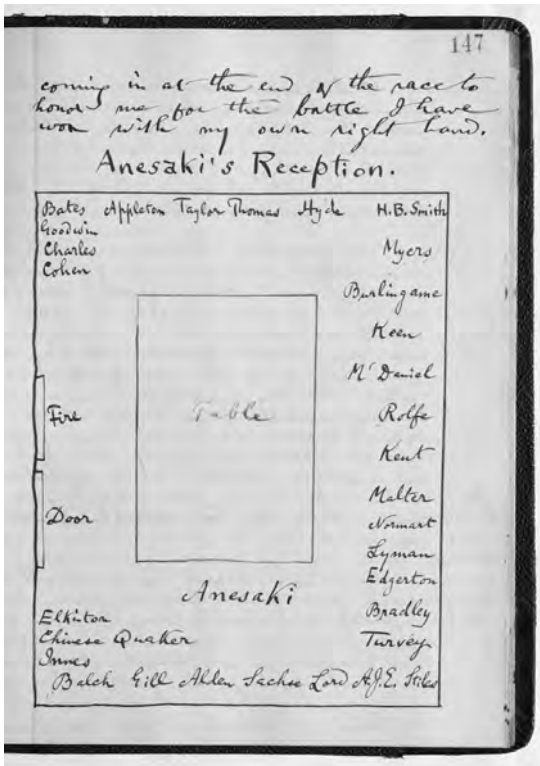 147
coming in at the end of the race to
honor me for the battle I have
won with my own right hand.
Anesaki's Reception.
Bates Appleton Taylor Thomas Hyde H.B. Smith
Goodwin
Charles Myers
Cohen
Burlingame
Keen
McDaniel
Fire Table Rolfe
Kent
Malter
Door Normart
Lyman
Edgerton
Anesaki
Bradley
Elkinton
Chinese Quaker Turvey
Innes
Balch Gill Alden Sachse Lord A.J.E. Stiles